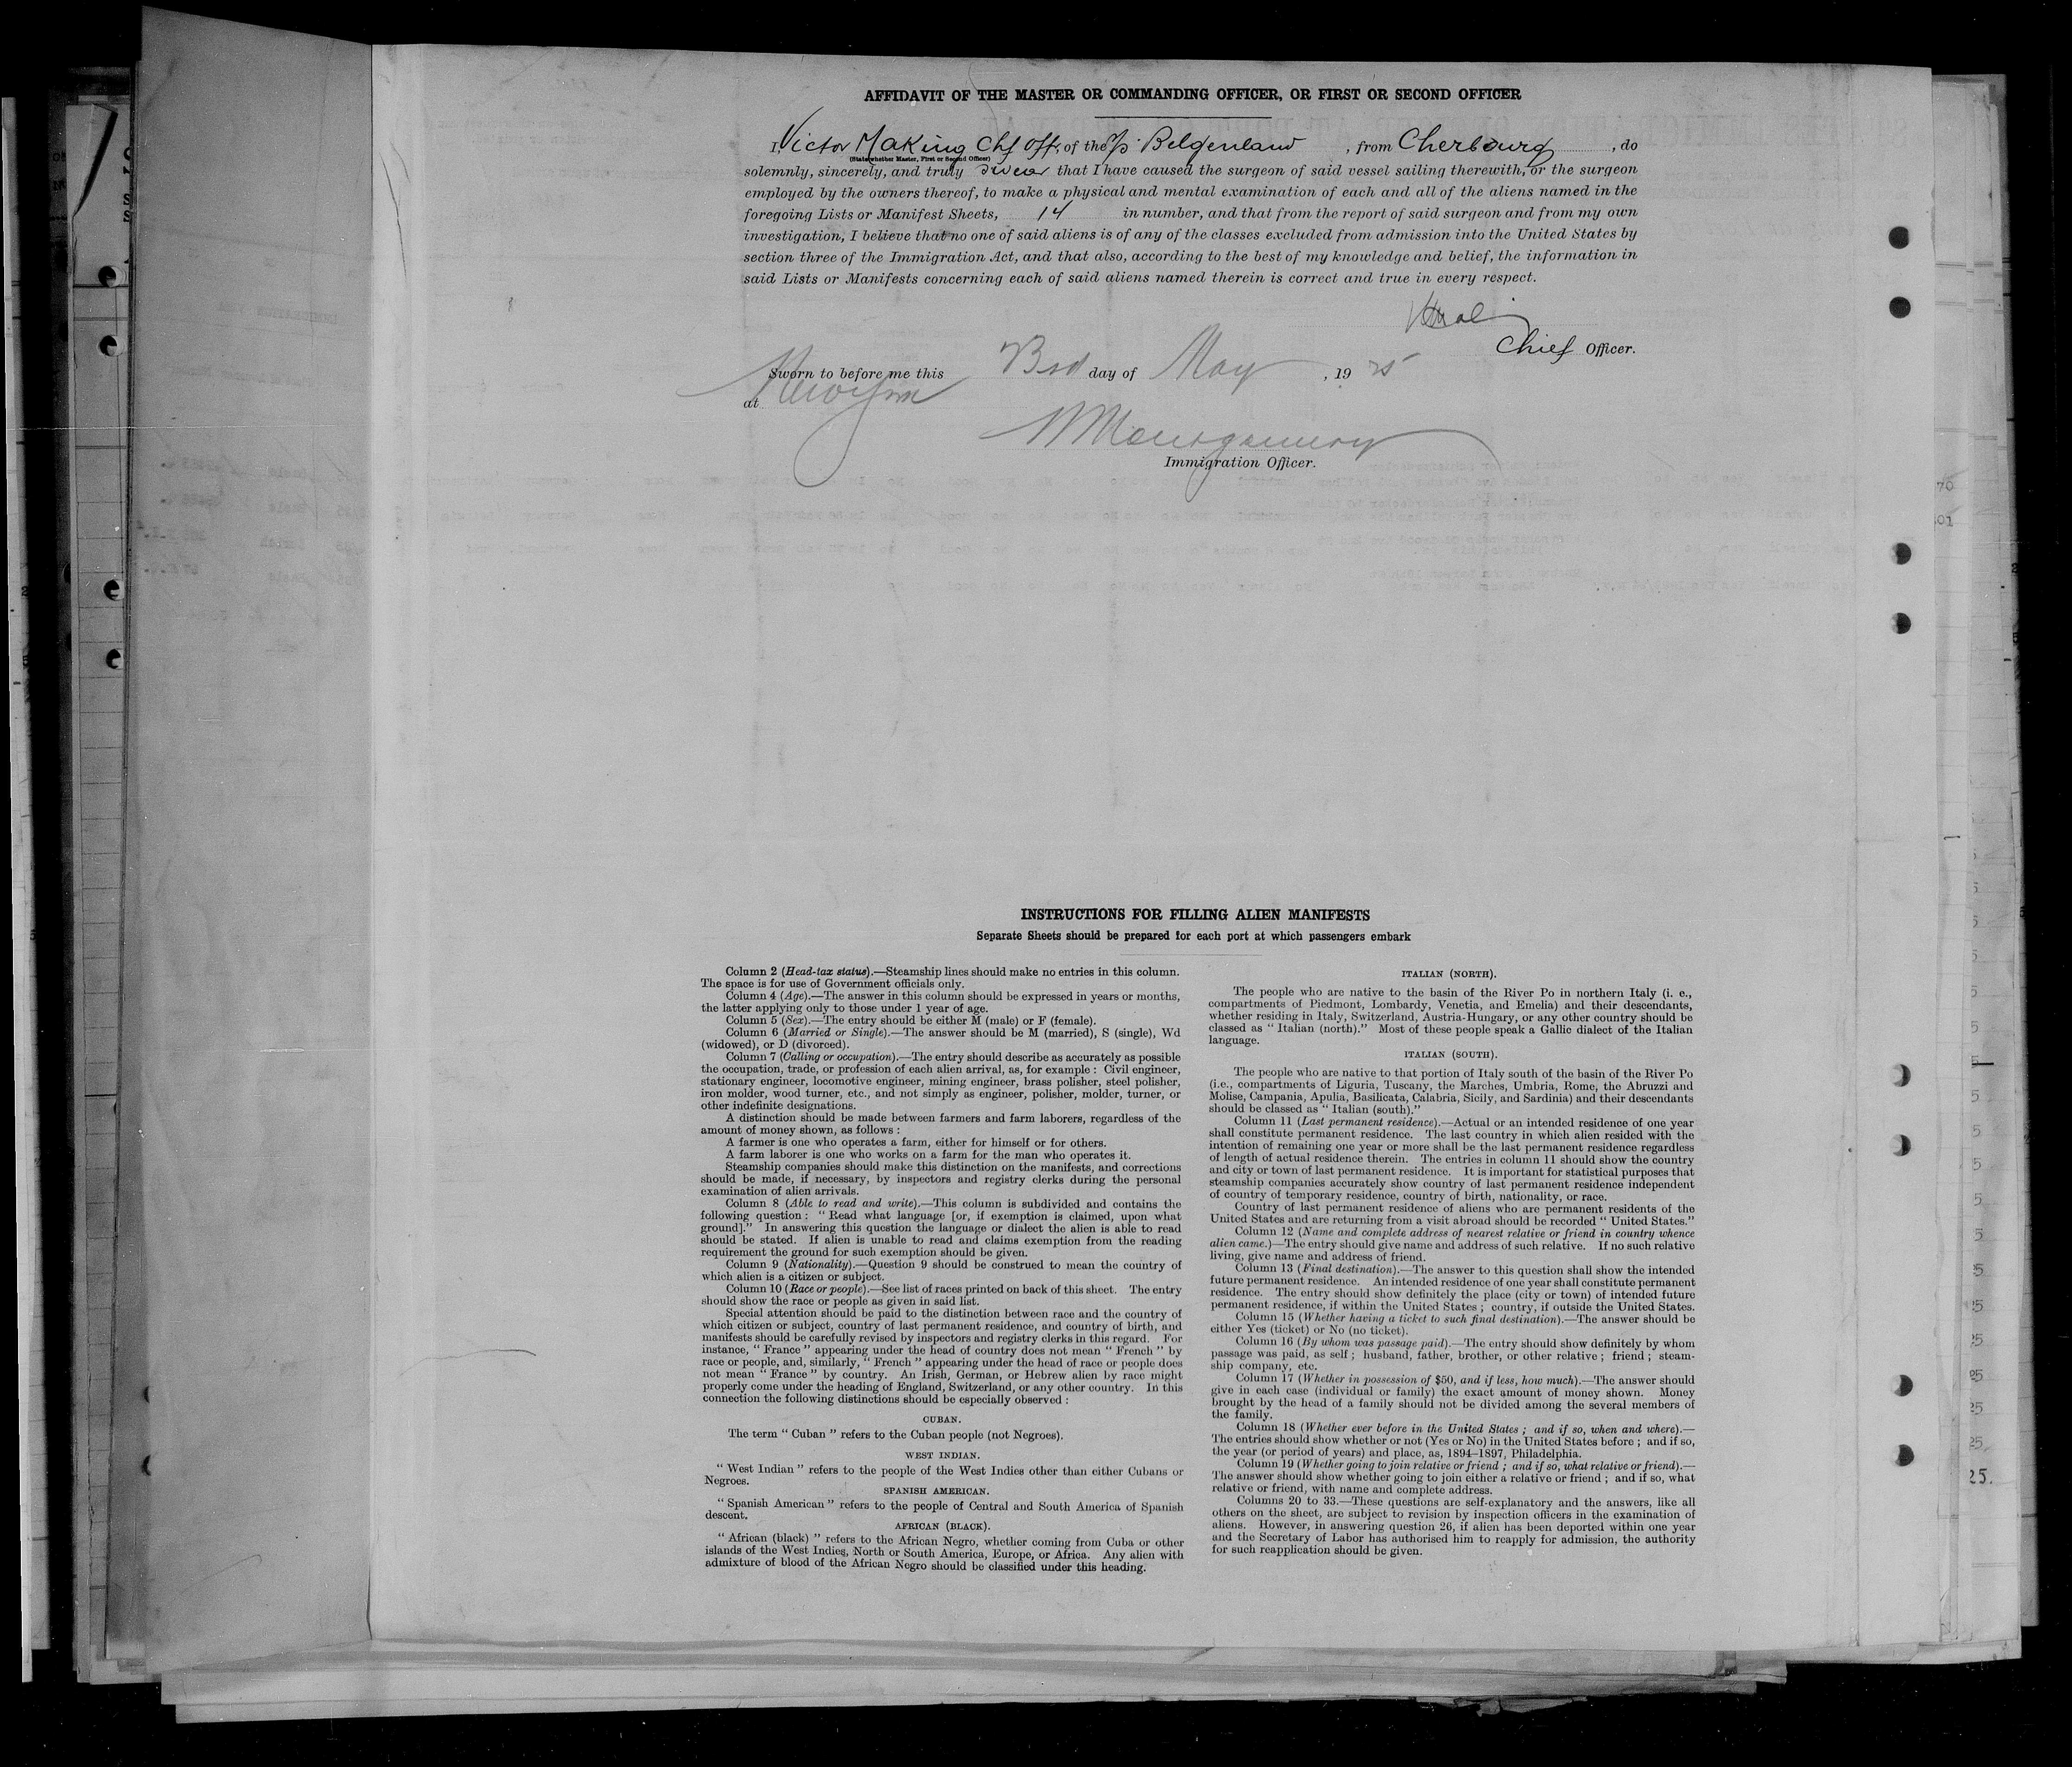 AFFIDAVIT OF THE MASTER OR COMMANDING OFFICER, OR FIRST OR SECOND OFFICER
I, Victor Making Chf Off. of the S/s Belgenland , from Cherbourg , do
(State whether Master, First or Second Officer)
solemnly, sincerely, and truly swear that I have caused the surgeon of said vessel sailing therewith, or the surgeon
employed by the owners thereof, to make a physical and mental examination of each and all of the aliens named in the
foregoing Lists or Manifest Sheets, 14 in number, and that from the report of said surgeon and from my own
investigation, I believe that no one of said aliens is of any of the classes excluded from admission into the United States by
section three of the Immigration Act, and that also, according to the best of my knowledge and belief, the information in
said Lists or Manifests concerning each of said aliens named therein is correct and true in every respect.
Chief Officer.
Sworn to before me this 3rd day of May , 19 25
at New York
Montgomery
Immigration Officer.
INSTRUCTIONS FOR FILLING ALIEN MANIFESTS
Separate Sheets should be prepared for each port at which passengers embark
Column 2 (Head-tax status).—Steamship lines should make no entries in this column.
The space is for use of Government officials only.
Column 4 (Age).—The answer in this column should be expressed in years or months,
the latter applying only to those under 1 year of age.
Column 5 (Sex).—The entry should be either M (male) or F (female).
Column 6 (Married or Single).—The answer should be M (married), S (single), Wd
(widowed), or D (divorced).
Column 7 (Calling or occupation).—The entry should describe as accurately as possible
the occupation, trade, or profession of each alien arrival, as, for example : Civil engineer,
stationary engineer, locomotive engineer, mining engineer, brass polisher, steel polisher,
iron molder, wood turner, etc., and not simply as engineer, polisher, molder, turner, or
other indefinite designations.
A distinction should be made between farmers and farm laborers, regardless of the
amount of money shown, as follows :
A farmer is one who operates a farm, either for himself or for others.
A farm laborer is one who works on a farm for the man who operates it.
Steamship companies should make this distinction on the manifests, and corrections
should be made, if necessary, by inspectors and registry clerks during the personal
examination of alien arrivals.
Column 8 (Able to read and write).—This column is subdivided and contains the
following question : “ Read what language [or, if exemption is claimed, upon what
ground].” In answering this question the language or dialect the alien is able to read
should be stated. If alien is unable to read and claims exemption from the reading
requirement the ground for such exemption should be given.
Column 9 (Nationality).—Question 9 should be construed to mean the country of
which alien is a citizen or subject.
Column 10 (Race or people).—See list of races printed on back of this sheet. The entry
should show the race or people as given in said list.
Special attention should be paid to the distinction between race and the country of
which citizen or subject, country of last permanent residence, and country of birth, and
manifests should be carefully revised by inspectors and registry clerks in this regard. For
instance, “ France ” appearing under the head of country does not mean “ French ” by
race or people, and, similarly, “ French ” appearing under the head of race or people does
not mean “ France ” by country. An Irish, German, or Hebrew alien by race might
properly come under the heading of England, Switzerland, or any other country. In this
connection the following distinctions should be especially observed :
CUBAN.
The term “ Cuban ” refers to the Cuban people (not Negroes).
WEST INDIAN.
“ West Indian ” refers to the people of the West Indies other than either Cubans or
Negroes.
SPANISH AMERICAN.
“ Spanish American ” refers to the people of Central and South America of Spanish
descent.
AFRICAN (BLACK).
“ African (black) ” refers to the African Negro, whether coming from Cuba or other
islands of the West Indies, North or South America, Europe, or Africa. Any alien with
admixture of blood of the African Negro should be classified under this heading.
ITALIAN (NORTH).
The people who are native to the basin of the River Po in northern Italy (i. e.,
compartments of Piedmont, Lombardy, Venetia, and Emelia) and their descendants,
whether residing in Italy, Switzerland, Austria-Hungary, or any other country should be
classed as “ Italian (north).” Most of these people speak a Gallic dialect of the Italian
language.
ITALIAN (SOUTH).
The people who are native to that portion of Italy south of the basin of the River Po
(i.e., compartments of Liguria, Tuscany, the Marches, Umbria, Rome, the Abruzzi and
Molise, Campania, Apulia, Basilicata, Calabria, Sicily, and Sardinia) and their descendants
should be classed as “ Italian (south).”
Column 11 (Last permanent residence).—Actual or an intended residence of one year
shall constitute permanent residence. The last country in which alien resided with the
intention of remaining one year or more shall be the last permanent residence regardless
of length of actual residence therein. The entries in column 11 should show the country
and city or town of last permanent residence. It is important for statistical purposes that
steamship companies accurately show country of last permanent residence independent
of country of temporary residence, country of birth, nationality, or race.
Country of last permanent residence of aliens who are permanent residents of the
United States and are returning from a visit abroad should be recorded “ United States.”
Column 12 (Name and complete address of nearest relative or friend in country whence
alien came.)—The entry should give name and address of such relative. If no such relative
living, give name and address of friend.
Column 13 (Final destination).—The answer to this question shall show the intended
future permanent residence. An intended residence of one year shall constitute permanent
residence. The entry should show definitely the place (city or town) of intended future
permanent residence, if within the United States ; country, if outside the United States.
Column 15 (Whether having a ticket to such final destination).—The answer should be
either Yes (ticket) or No (no ticket).
Column 16 (By whom was passage paid).—The entry should show definitely by whom
passage was paid, as self ; husband, father, brother, or other relative ; friend ; steam-
ship company, etc.
Column 17 (Whether in possession of $50, and if less, how much).—The answer should
give in each case (individual or family) the exact amount of money shown. Money
brought by the head of a family should not be divided among the several members of
the family.
Column 18 (Whether ever before in the United States ; and if so, when and where).—
The entries should show whether or not (Yes or No) in the United States before ; and if so,
the year (or period of years) and place, as, 1894–1897, Philadelphia.
Column 19 (Whether going to join relative or friend ; and if so, what relative or friend).—
The answer should show whether going to join either a relative or friend ; and if so, what
relative or friend, with name and complete address.
Columns 20 to 33.—These questions are self-explanatory and the answers, like all
others on the sheet, are subject to revision by inspection officers in the examination of
aliens. However, in answering question 26, if alien has been deported within one year
and the Secretary of Labor has authorised him to reapply for admission, the authority
for such reapplication should be given.